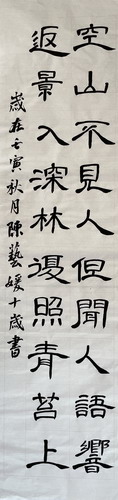 空山不見人但聞人語響
返景入深林復照青苔上
歲在壬寅秋月陳藝媛十歲書